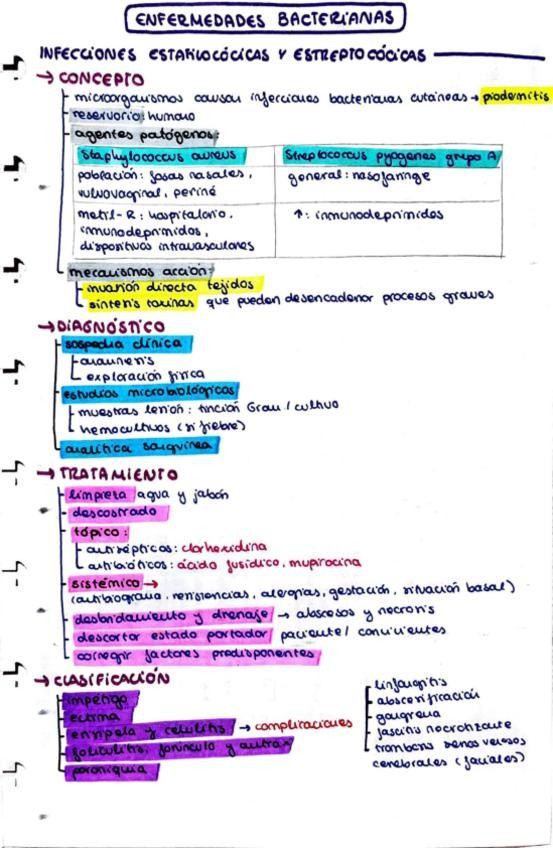 ENFERMEDADES BACTERIANAS
INFECCIONES ESTAFILOCÓCICAS Y ESTREPTOCÓCICAS
→ CONCEPTO
microorganismos causan infecciones bacterianas cutáneas → piodermitis
reservorio: humano
agentes patógenos:
Staphylococcus aureus
Streptococcus pyogenes grupo A
población: fosas nasales,
vulvovaginal, periné
general: nasofaringe
metil-R: hospitalario,
inmunodeprimidos,
dispositivos intravasculares
↑: inmunodeprimidos
mecanismos acción:
invasión directa tejidos
síntesis toxinas que pueden desencadenar procesos graves
→ DIAGNÓSTICO
sospecha clínica
anamnesis
exploración física
estudios microbiológicos
muestras lesión: tinción Gram / cultivo
hemocultivos (si fiebre)
analítica sanguínea
→ TRATAMIENTO
limpieza agua y jabón
descostrado
tópico:
antisépticos: clorhexidina
antibióticos: ácido fusídico, mupirocina
sistémico →
(antibiograma, resistencias, alergias, gestación, situación basal)
desbridamiento y drenaje → abscesos y necrosis
descartar estado portador paciente / convivientes
corregir factores predisponentes
→ CLASIFICACIÓN
impétigo
ectima
erisipela y celulitis → complicaciones
foliculitis, forúnculo y ántrax
paroniquia
linfangitis
abscesificación
gangrena
fascitis necrotizante
trombosis senos venosos
cerebrales (faciales)